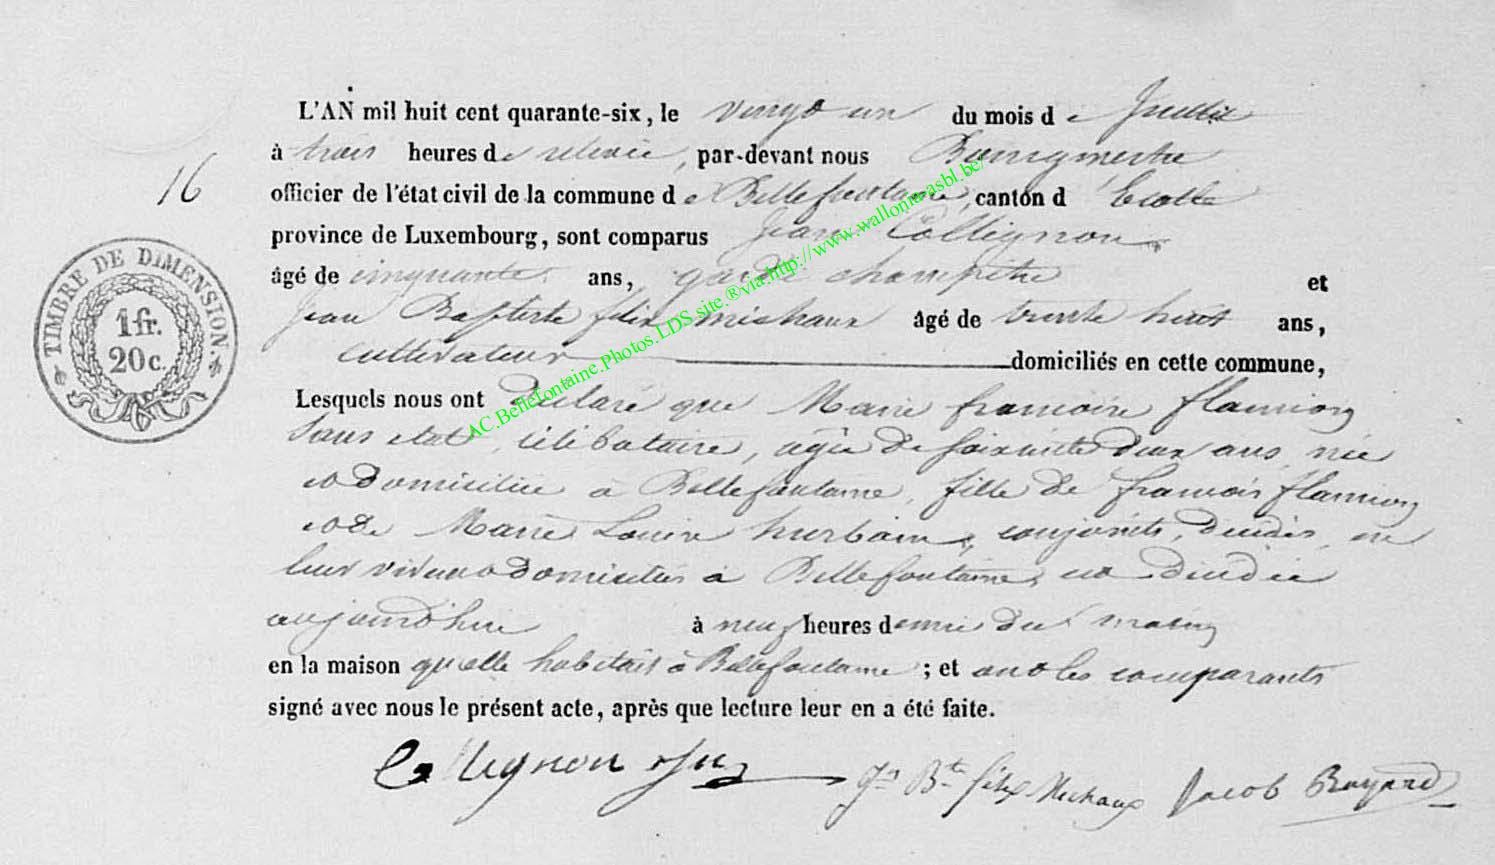 L'AN mil huit cent quarante-six, le vingt un du mois de Juillet
à trois heures de relevée, par-devant nous Bourgmestre
16
officier de l'état civil de la commune de Bellefontaine, canton d' Etalle
province de Luxembourg, sont comparus Jean Collignon
âgé de cinquante ans, garde champêtre et
Jean Baptiste félix michaux âgé de trente huit ans,
cultivateur domiciliés en cette commune,
Lesquels nous ont déclaré que Marie francoise flamion
Sans etat, célibataire, agée de soixante deux ans, née
et domiciliée à Bellefontaine, fille de francois flamion
et de Marie Louise hurbain, conjoints, décédés, en
leur vivant domiciliés à Bellefontaine, est décédée
aujourd'hui à neuf heures demie du matin
en la maison qu'elle habitait à Bellefontaine ; et ont les comparants
signé avec nous le présent acte, après que lecture leur en a été faite.
Collignon
Jn Bte félix Michaux
Jacob Bayard
TIMBRE DE DIMENSION.
1 fr.
20 c.
AC.Bellefontaine.Photos.LDS.site.®via.http://www.wallonia-asbl.be/